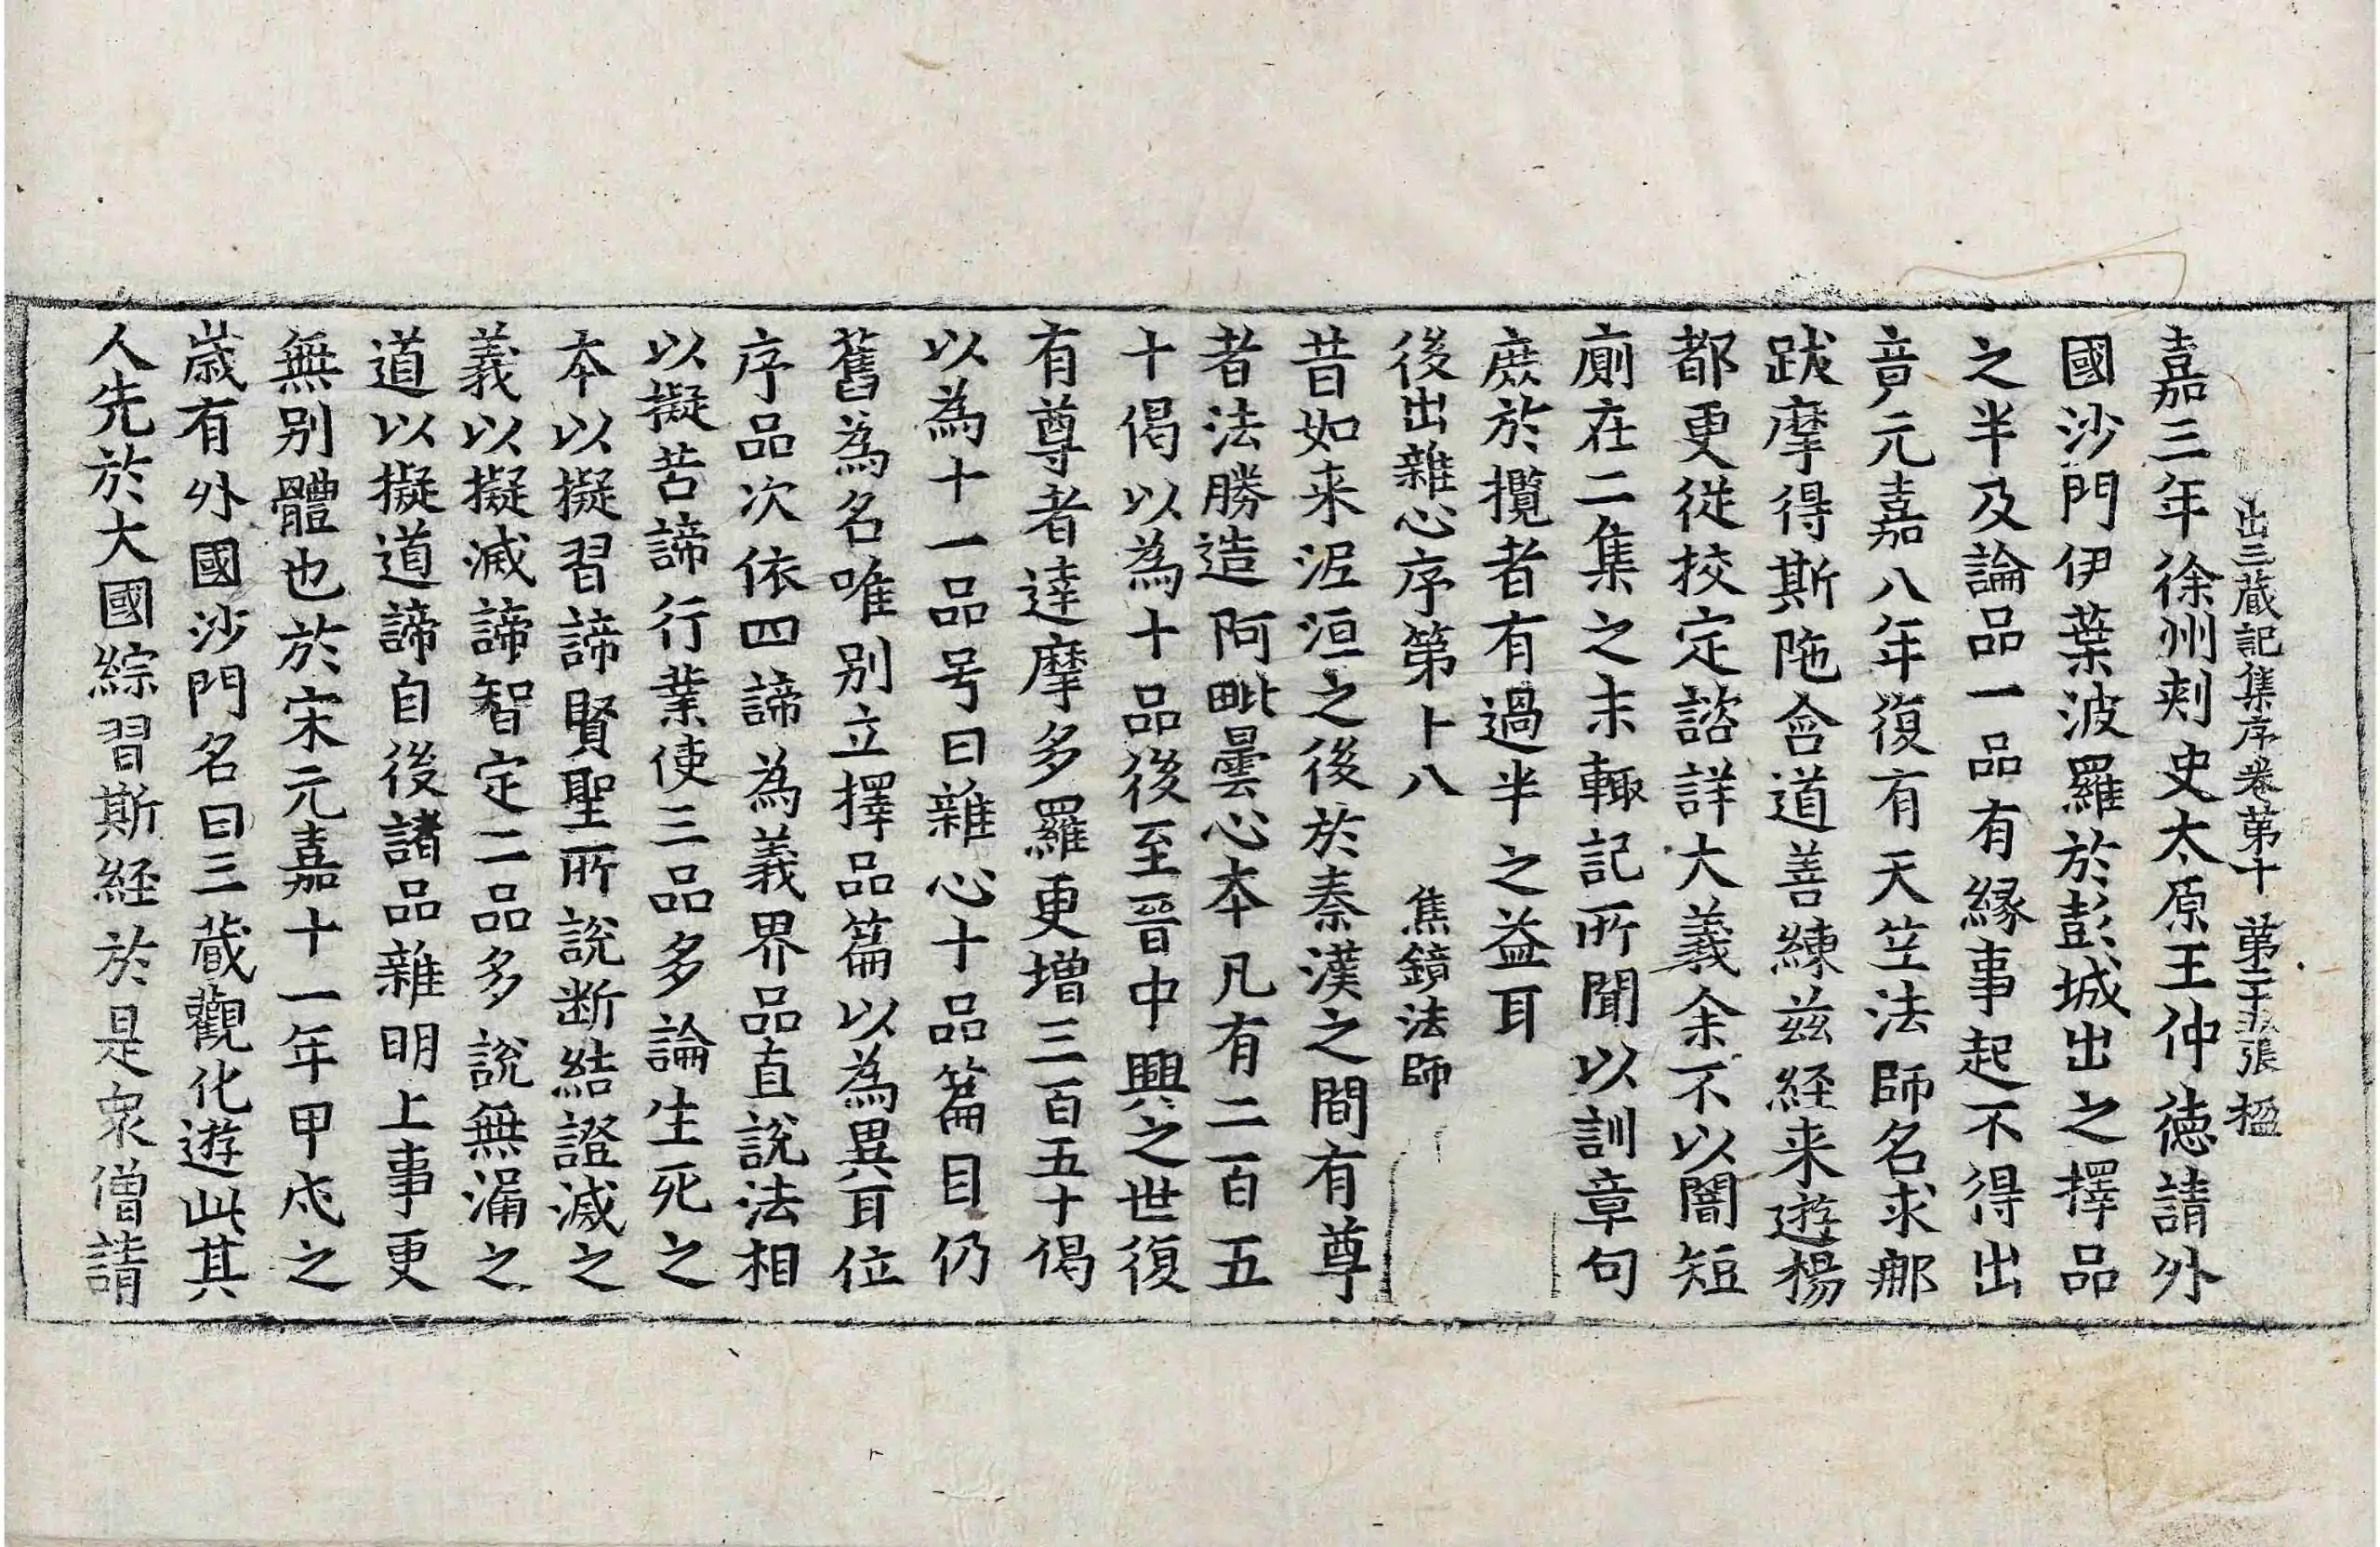 出三蔵記集序卷第十 第二十五張 楹
嘉三年徐州刾史太原王仲徳請外
國沙門伊葉波羅於彭城出之擇品
之半及論品一品有縁事起不得出
竟元嘉八年復有天笁法師名求郍
跋摩得斯陁含道善練兹経来遊楊
都更従挍定諮詳大義余不以闇短
廁在二集之末輙記所聞以訓章句
庶於攬者有過半之益耳
後出雜心序第十八 焦鏡法師
昔如来泥洹之後於秦漢之間有尊
者法勝造阿毗曇心本凡有二百五
十偈以為十品後至晉中興之世復
有尊者達摩多羅更增三百五十偈
以為十一品号曰雜心十品篇目仍
舊為名唯别立擇品篇以為異耳位
序品次依四諦為義界品直說法相
以擬苦諦行業使三品多論生死之
本以擬習諦賢聖所說断結證滅之
義以擬滅諦智定二品多說無漏之
道以擬道諦自後諸品雜明上事更
無别體也於宋元嘉十一年甲戍之
歳有外國沙門名曰三蔵觀化遊此其
人先於大國綜習斯経於是衆僧請